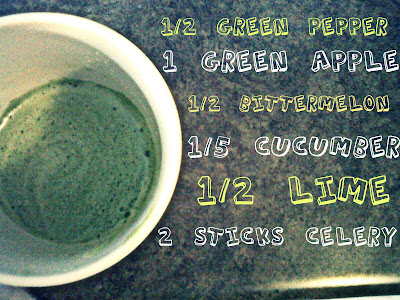 1/2 GREEN PEPPER
1 GREEN APPLE
1/2 BITTERMELON
1/5 CUCUMBER
1/2 LIME
2 STICKS CELERY